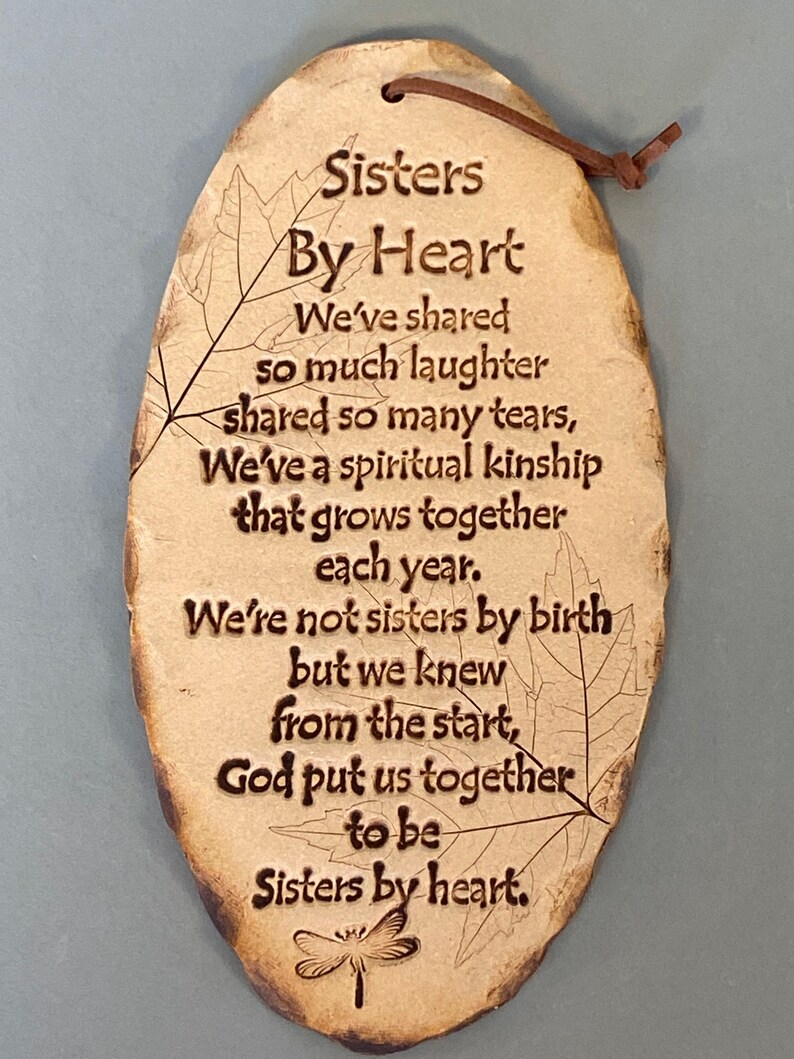 Sisters
By Heart
We've shared
so much laughter
shared so many tears,
We've a spiritual kinship
that grows together
each year.
We're not sisters by birth
but we knew
from the start,
God put us together
to be
Sisters by heart.